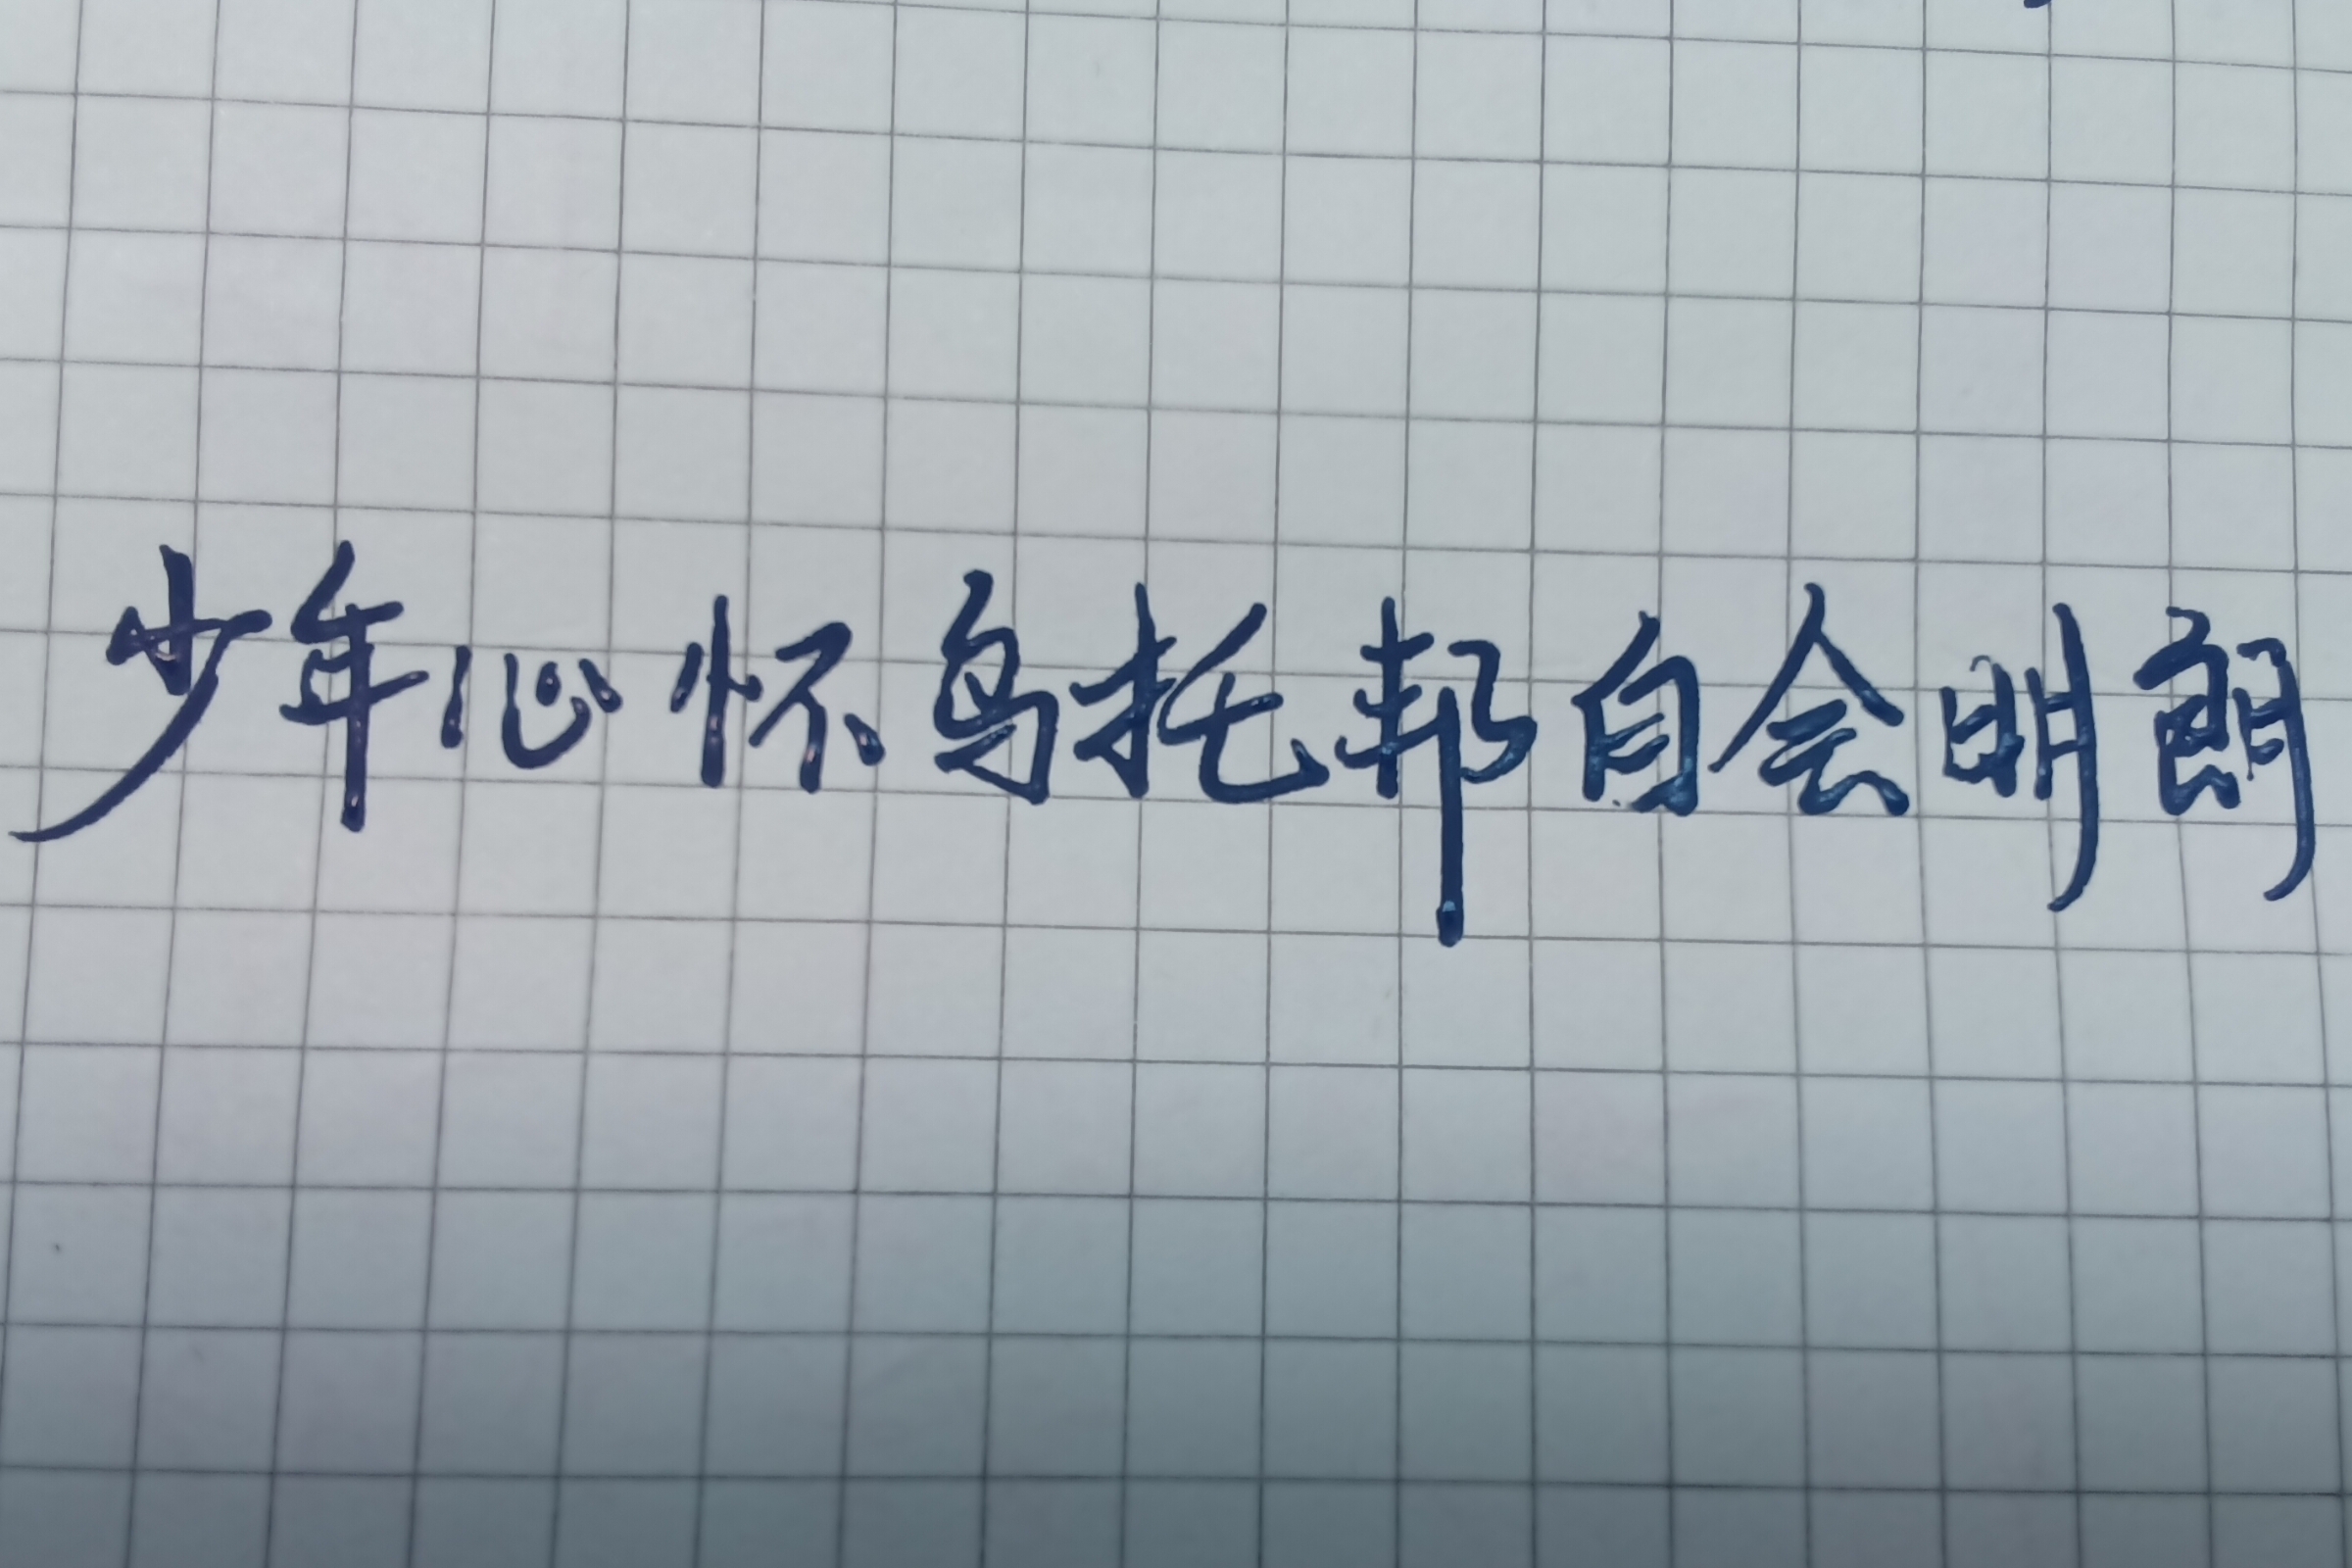 少年心怀乌托邦自会明朗